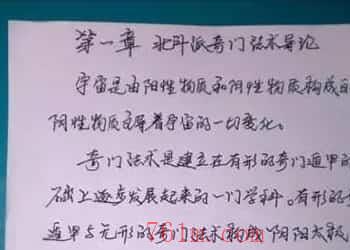 第一章 北斗派奇门法术导论
宇宙是由阳性物质和阴性物质构成的
阴性物质主导着宇宙的一切变化。
奇门法术是建立在有形的奇门遁甲的
础上逐步发展起来的一门学科。有形的
遁甲与无形的奇门法术构成“阴阳太极